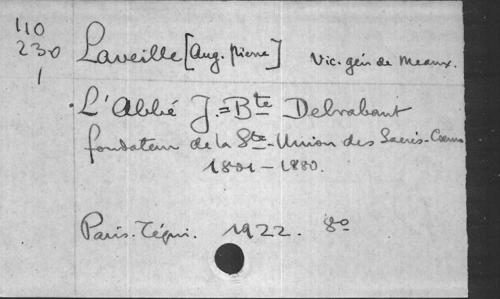 110
230
1
Laveille [Aug. Pierre] Vic. gén de Meaux.
L'Abbé J.=Bte Debrabant
fondateur de la Ste-Union des Sacrés-Coeurs
1801-1880.
Paris. Téqui. 1922. 8º